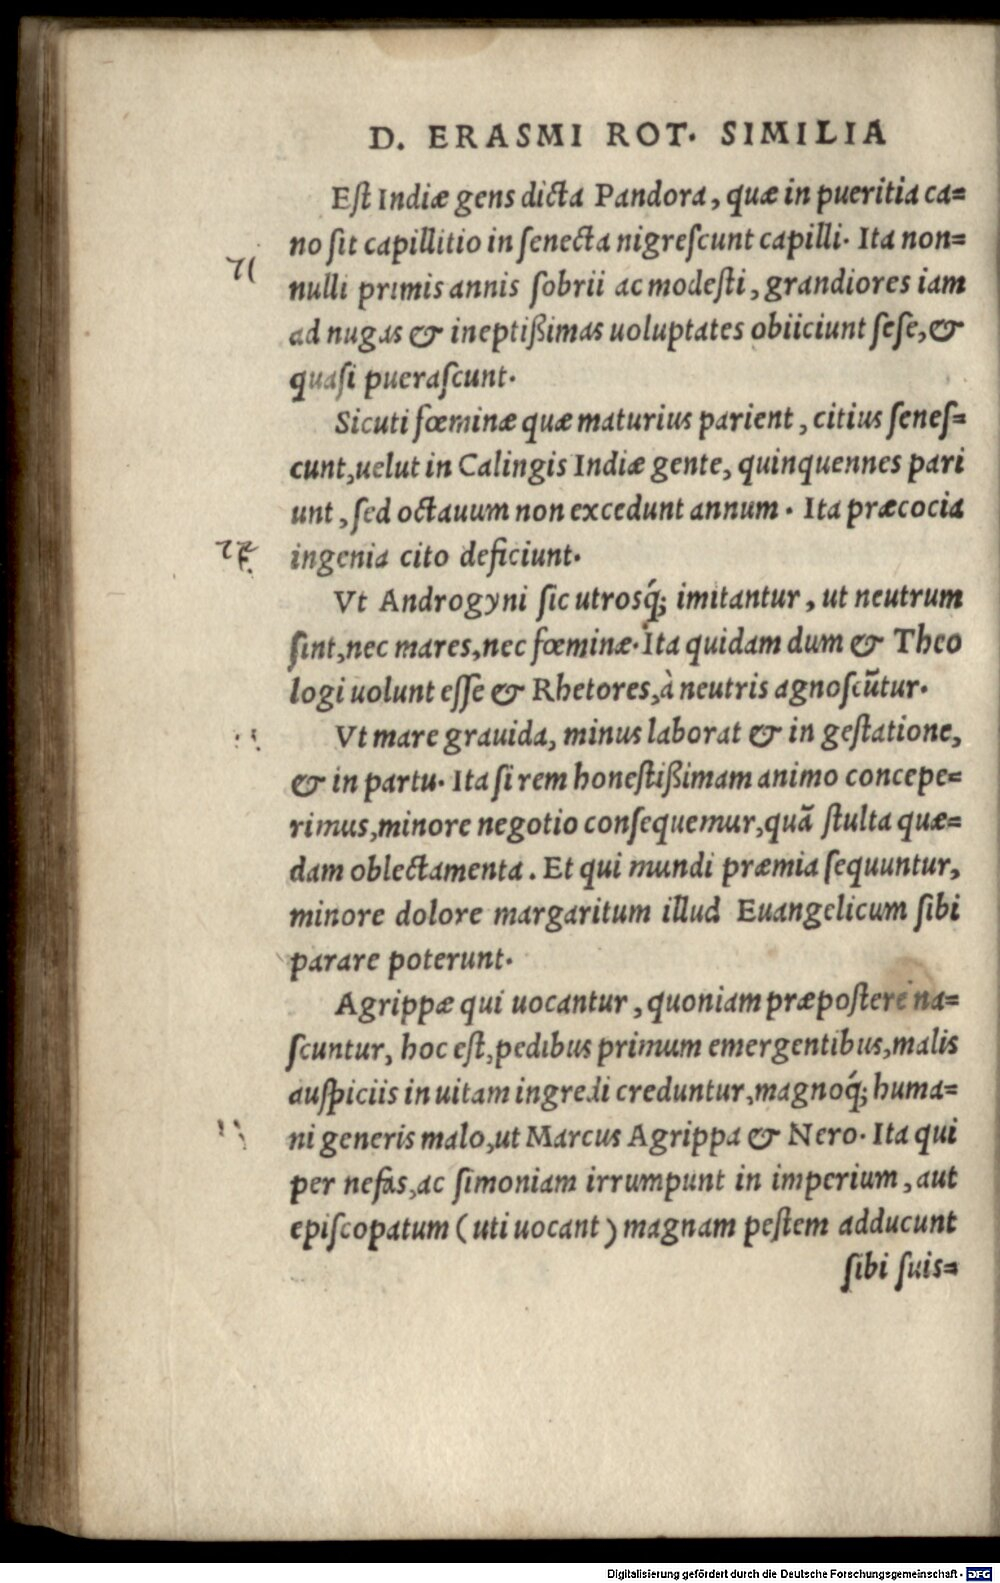 D. ERASMI ROT. SIMILIA
Eſt Indiæ gens dicta Pandora, quæ in pueritia ca=
no ſit capillitio in ſenecta nigreſcunt capilli. Ita non=
nulli primis annis ſobrii ac modeſti, grandiores iam
ad nugas & ineptißimas uoluptates obiiciunt ſeſe, &
quaſi pueraſcunt.
Sicuti fœminæ quæ maturius parient, citius ſeneſ=
cunt, uelut in Calingis Indiæ gente, quinquennes pari
unt, ſed octauum non excedunt annum. Ita præcocia
ingenia cito deficiunt.
Vt Androgyni ſic utroſq́; imitantur, ut neutrum
ſint, nec mares, nec fœminæ. Ita quidam dum & Theo
logi uolunt eſſe & Rhetores, à neutris agnoſcũtur.
Vt mare grauida, minus laborat & in geſtatione,
& in partu. Ita ſi rem honeſtißimam animo concepe=
rimus, minore negotio conſequemur, quã ſtulta quæ=
dam oblectamenta. Et qui mundi præmia ſequuntur,
minore dolore margaritum illud Euangelicum ſibi
parare poterunt.
Agrippæ qui uocantur, quoniam præpoſtere na=
ſcuntur, hoc eſt, pedibus primum emergentibus, malis
auſpiciis in uitam ingredi creduntur, magnoq́; huma=
ni generis malo, ut Marcus Agrippa & Nero. Ita qui
per nefas, ac ſimoniam irrumpunt in imperium, aut
epiſcopatum (uti uocant) magnam peſtem adducunt
ſibi ſuis=
Digitalisierung gefördert durch die Deutsche Forschungsgemeinschaft - DFG